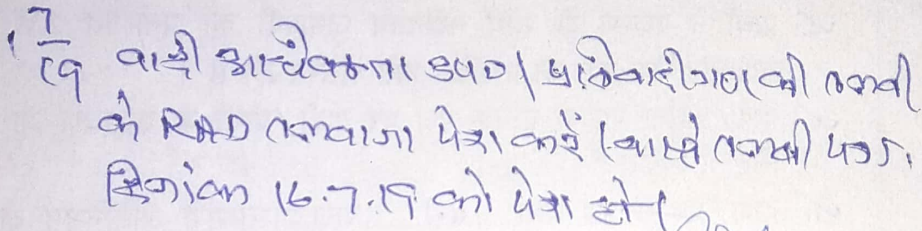 7/19 वादी अधिवक्ता उप0। प्रतिवादीगण की तलबी
के RAD तलवाना पेश करें। वास्ते तलबी पत्रा.
दिनांक 16.7.19 को पेश हो।